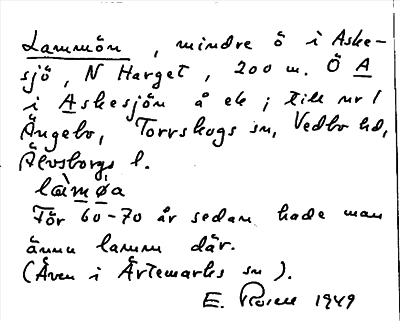 Lammön, mindre ö i Aske-
sjö, N Harget, 200 m. Ö A
i Askesjön å ek; till nr 1
Ängebo, Torrskogs sn, Vedbo hd,
Älvsborgs l.
làmøa
För 60-70 år sedan hade man
ännu lamm där.
(Även i Ärtemarks sn).
E. Rosell 1949